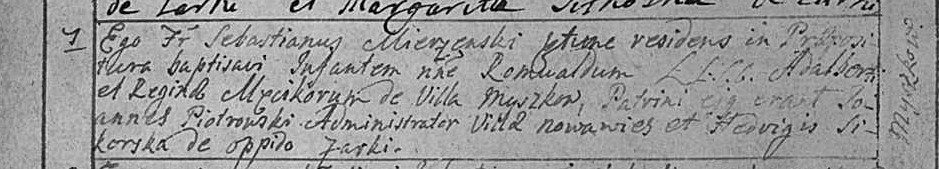 de Zarki et Margaritta
7 Ego Fr Sebastianus Mierzenski residens in Praeposi-
tura baptisavi Infantem nne Romualdum L.L.C.C. Adalberti
et Reginae Mzcikorum de Villa Myszkow, Patrini ejq erant Jo-
annes Piotrowski Administrator Villae nowawies et Hedvigis Si-
korska de oppido Zarki.
Myszkow